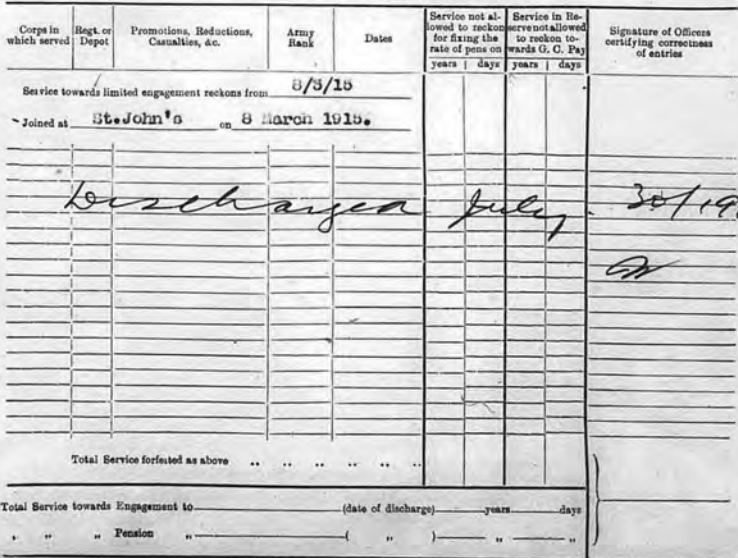 Corps in which served
Regt. or Depot
Promotions, Reductions, Casualties, &c.
Army Rank
Dates
Service not allowed to reckon for fixing the rate of pens on
Service in Reserve not allowed to reckon towards G. C. Pay
Signature of Officers certifying correctness of entries
years | days years | days
Service towards limited engagement reckons from 8/3/15
Joined at St.John's on 8 March 1915.
Discharged July 30/19
Total Service forfeited as above .. .. .. .. .. ..
Total Service towards Engagement to (date of discharge) years days
„ „ „ Pension „ ( „ ) „ „